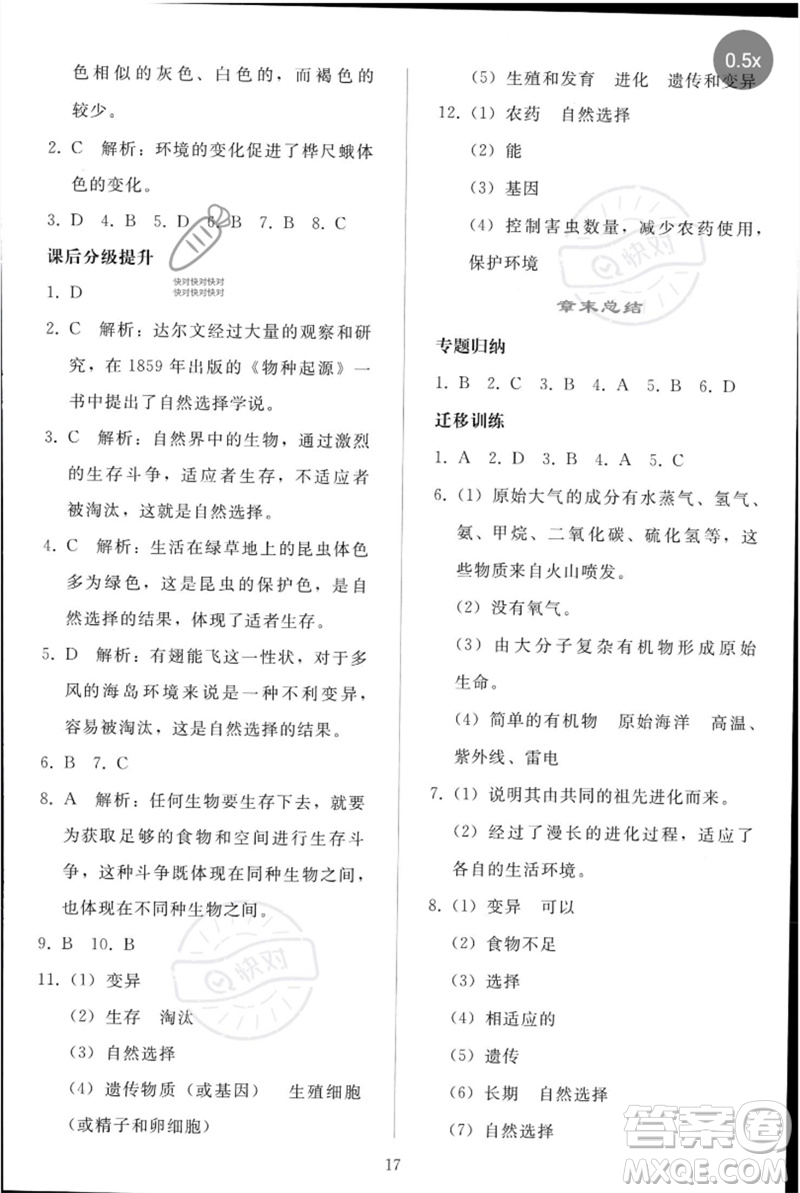 色相似的灰色、白色的，而褐色的
较少。
2. C　解析：环境的变化促进了桦尺蛾体
色的变化。
3. D　4. B　5. D　6. B　7. B　8. C
课后分级提升
1. D
2. C　解析：达尔文经过大量的观察和研
究，在 1859 年出版的《物种起源》一
书中提出了自然选择学说。
3. C　解析：自然界中的生物，通过激烈
的生存斗争，适应者生存，不适应者
被淘汰，这就是自然选择。
4. C　解析：生活在绿草地上的昆虫体色
多为绿色，这是昆虫的保护色，是自
然选择的结果，体现了适者生存。
5. D　解析：有翅能飞这一性状，对于多
风的海岛环境来说是一种不利变异，
容易被淘汰，这是自然选择的结果。
6. B　7. C
8. A　解析：任何生物要生存下去，就要
为获取足够的食物和空间进行生存斗
争，这种斗争既体现在同种生物之间，
也体现在不同种生物之间。
9. B　10. B
11.（1）变异
（2）生存　淘汰
（3）自然选择
（4）遗传物质（或基因）　生殖细胞
（或精子和卵细胞）
（5）生殖和发育　进化　遗传和变异
12.（1）农药　自然选择
（2）能
（3）基因
（4）控制害虫数量，减少农药使用，
保护环境
章末总结
专题归纳
1. B　2. C　3. B　4. A　5. B　6. D
迁移训练
1. A　2. D　3. B　4. A　5. C
6.（1）原始大气的成分有水蒸气、氢气、
氨、甲烷、二氧化碳、硫化氢等，这
些物质来自火山喷发。
（2）没有氧气。
（3）由大分子复杂有机物形成原始
生命。
（4）简单的有机物　原始海洋　高温、
紫外线、雷电
7.（1）说明其由共同的祖先进化而来。
（2）经过了漫长的进化过程，适应了
各自的生活环境。
8.（1）变异　可以
（2）食物不足
（3）选择
（4）相适应的
（5）遗传
（6）长期　自然选择
（7）自然选择
17
0.5x
快对快对快对
快对快对快对
快对
快对
答案圈
MXQE.COM